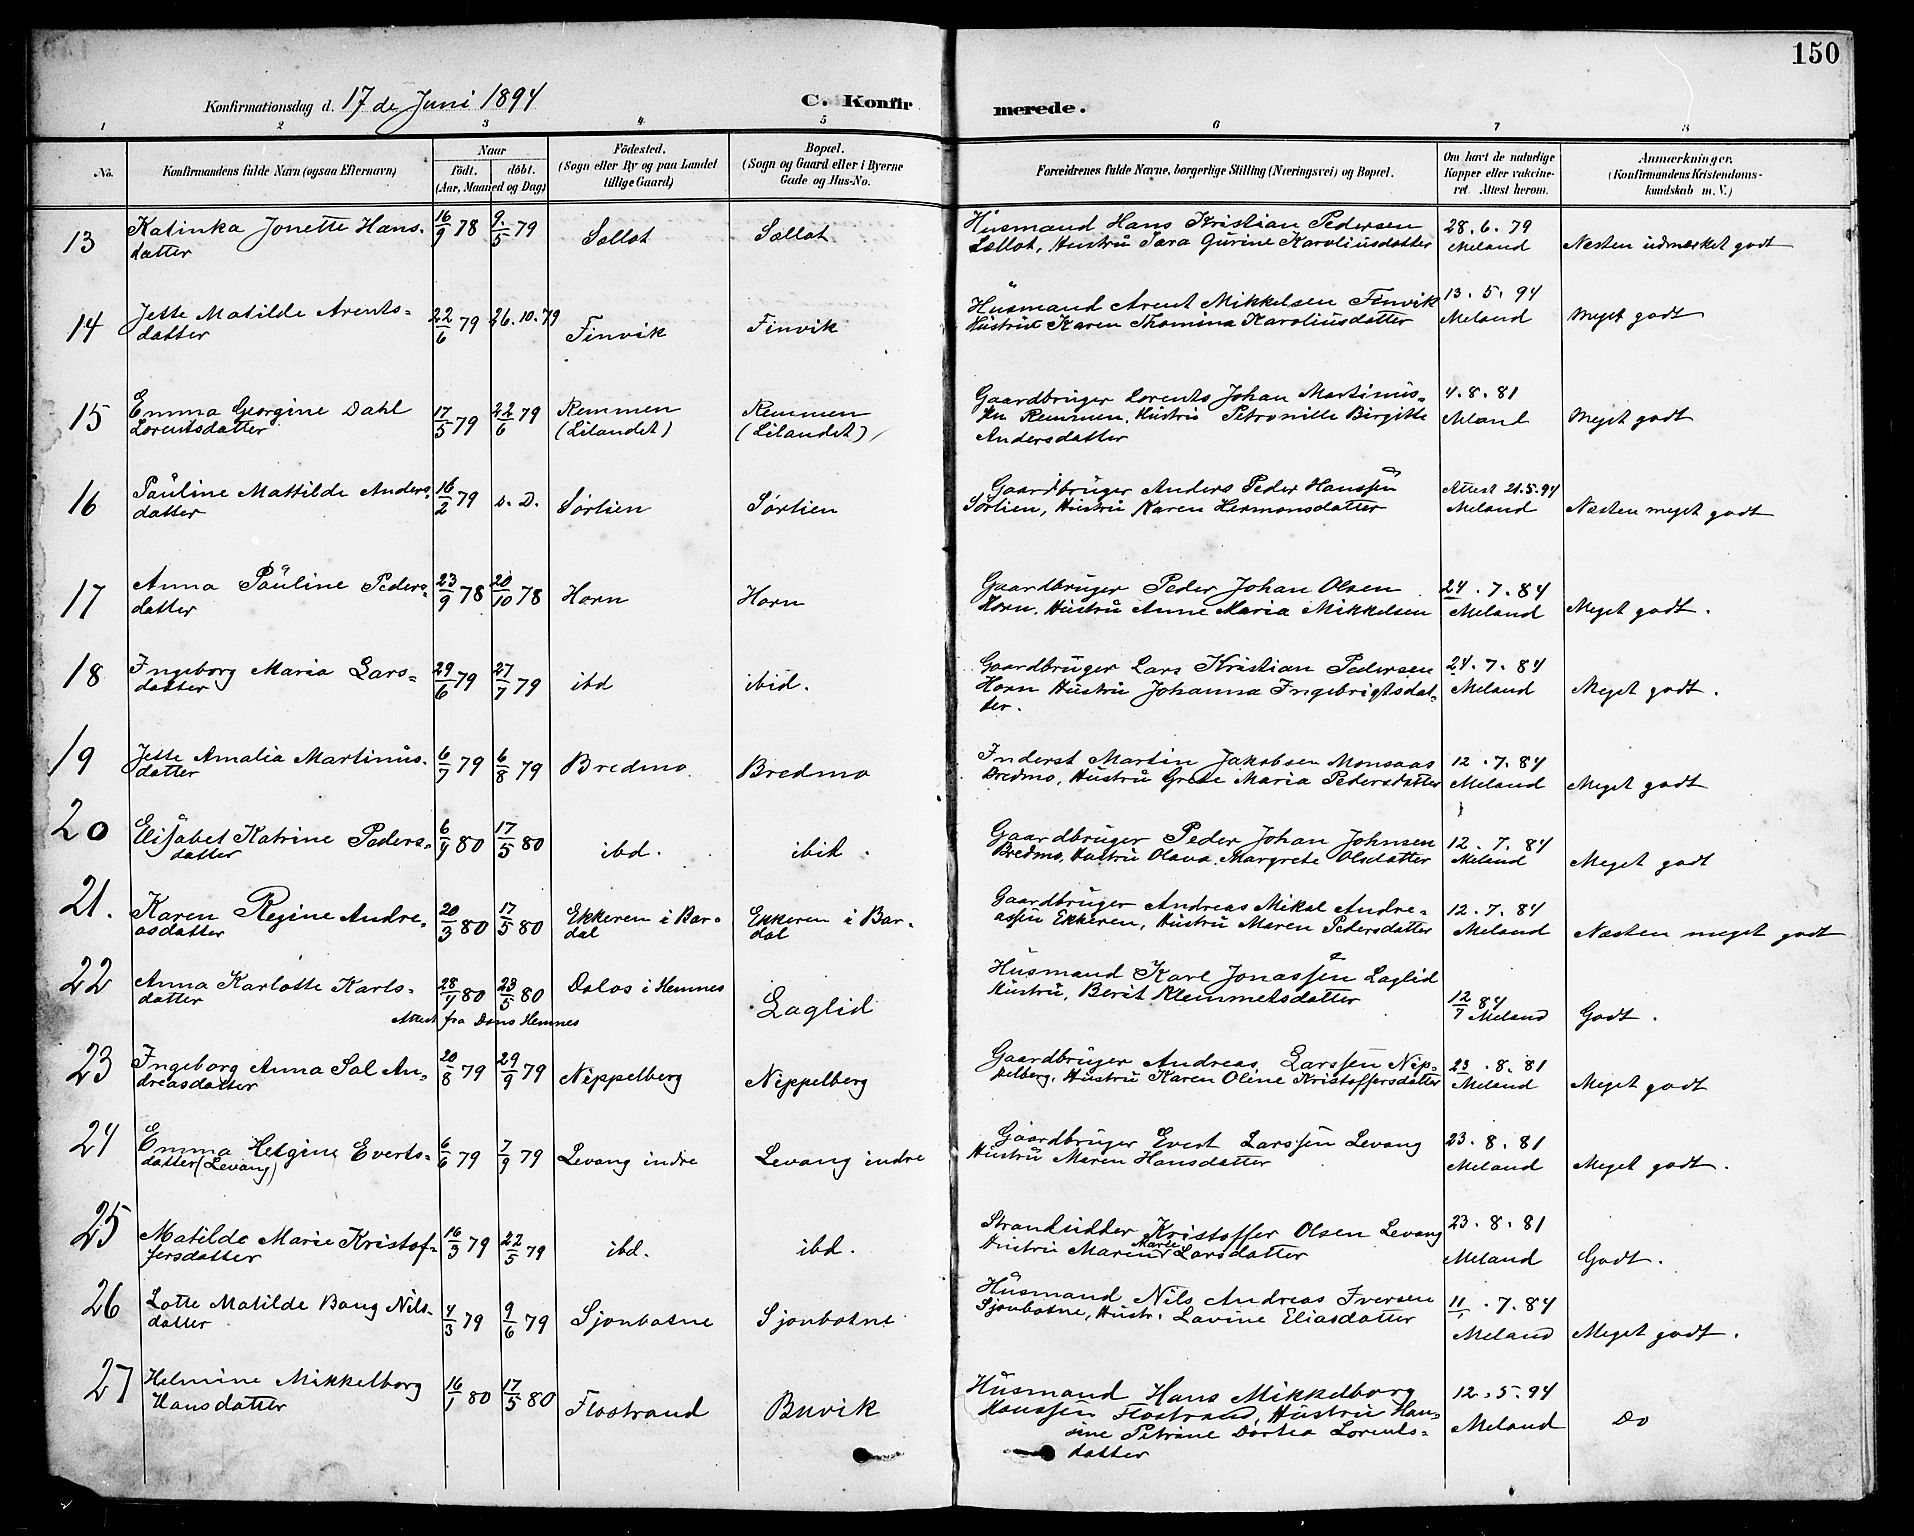 150
Konfirmationsdag d. 17de Juni 1894
C. Konfirmerede.
1 2 3 4 5 6 7 8
No.
Konfirmandens fulde Navn (ogsaa Efternavn)
Naar
födt. döbt.
(Aar, Maaned og Dag)
Födested.
(Sogn eller By og paa Landet
tillige Gaard)
Bopæl.
(Sogn og Gaard eller i Byerne
Gade og Hus-No.
Forældrenes fulde Navne, borgerlige Stilling (Næringsvei) og Bopæl.
Om havt de naturlige
Kopper eller vakcine-
ret. Attest herom.
Anmærkninger.
(Konfirmandens Kristendoms-
kundskab m. V.)
13 Katinka Jonette Hans- 16/9 78 9/5 79 Sællot Sællot Husmand Hans Kristian Pedersen 28.6.79
datter Sællot, Hustru Sara Gurine Karoliusdatter Meland Næsten udmærket godt
14 Jette Matilde Arents- 22/6 79 26.10.79 Finvik Finvik Husmand Arent Mikkelsen Finvik 13.5.94
datter Hustru Karen Thomina Karoliusdatter Meland Meget godt
15 Emma Georgine Dahl 17/5 79 22/6 79 Remmen Remmen Gaardbruger Lorents Johan Martinus- 4.8.81
Lorentsdatter (Lilandet) (Lilandet) Remmen, Hustru Petronille Birgitte Meland Meget godt
Andersdatter
16 Pauline Mattilde Anders- 16/2 79 s. D. Sørlien Sørlien Gaardbruger Anders Peder Hanssen Attest 21.5.94
datter Sørlien, Hustru Karen Hermansdatter Meland Næsten meget godt
17 Anna Pauline Peders- 23/9 78 20/10 78 Horn Horn Gaardbruger Peder Johan Olsen 24.7.84
datter Horn, Hustru Anne Maria Mikkelsen Meland Meget godt.
18 Ingeborg Maria Lars- 29/6 79 27/7 79 ibd ibid. Gaardbruger Lars Kristian Pedersen 24.7.84
datter Horn Hustru Johanna Ingebrigtsdat- Meland Meget godt.
ter.
19 Jette Amalia Martinus- 6/7 79 6/8 79 Bredmo Bredmo Inderst Martin Jakobsen Monsaas 12.7.84
datter Bredmo, Hustru Grete Maria Pedersdatter Meland Meget godt
20 Elisabet Katrine Peders- 6/4 80 17/5 80 ibd. ibid. Gaardbruger Peder Johan Johnsen 12.7.84
datter Bredmo, Hustru Olava Margrete Olsdatter Meland Meget godt
21. Karen Regine Andre- 20/3 80 17/5 80 Ekkeren i Bar- Ekkeren i Bar- Gaardbruger Andreas Mikal Andre- 12.7.84
asdatter dal dal assen Ekkeren, Hustru Maren Pedersdatter Meland Næsten meget godt
22 Anna Karlotte Karls- 28/4 80 23/5 80 Dalos i Hemnes Laglid Husmand Karl Jonassen Laglid 12/7 84
datter Hustru, Berit Klemmetsdatter Meland Godt.
Attest fra Dans Hemnes
23 Ingeborg Anna Sal An- 20/8 79 29/9 79 Nippelberg Nippelberg Gaardbruger Andreas Larssen Nip- 23.8.81
dreasdatter pelberg, Hustru Karen Oline Kristoffersdatter Meland Meget godt
24 Emma Helgine Everts- 6/6 79 7/9 79 Levang indre Levang indre Gaardbruger Evert Larssen Levang 23.8.81
datter (Levang) Hustru Maren Hansdatter Meland Meget godt.
25 Matilde Marie Kristof- 16/3 79 22/5 79 ibd. ibd. Strandsidder Kristoffer Olsen Levang 23.8.81
fersdatter Hustru Maren Marie Larsdatter Meland Godt.
26 Lotte Matilde Bang Nils- 4/3 79 9/6 79 Sjonbotne Sjonbotne Husmand Nils Andreas Iversen 11.7.84
datter Sjonbotne, Hustr. Lavine Eliasdatter Meland Meget godt.
27 Helmine Mikkelborg 16/1 80 17/5 80 Flostrand Buvik Husmand Hans Mikkelborg 12.5.94
Hansdatter Hanssen Flostrand, Hustru Han- Meland Do
sine Petrine Dortea Lorents-
datter